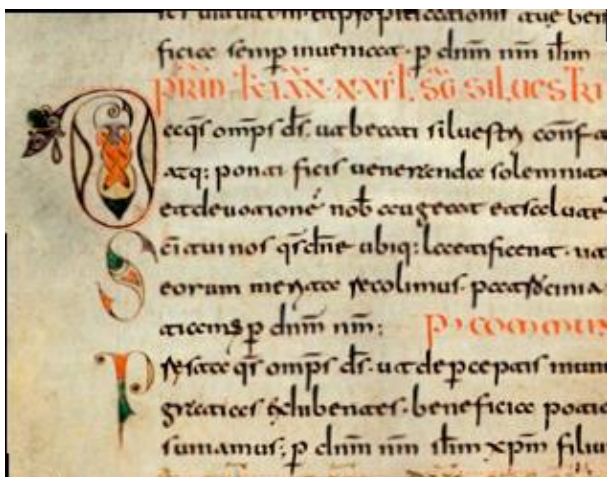 ficia semp inueniat· p dnm nm ihm
PRID KL IAN NAT SCI SILUESTRI
D a qs omps ds· ut beati siluestri conf
atq: pontificis ueneranda solemnita
et deuotione nob augeat et salute
S ci tui nos qs dne ubiq: laetificent· ut
eorum merita recolimus patrocinia
p dnm nm: P COMMUN
P resta qs omps ds· ut de perceptis mun
gratias exhibentes· beneficia potio
sumamus: p dnm nm ihm xpm filiu